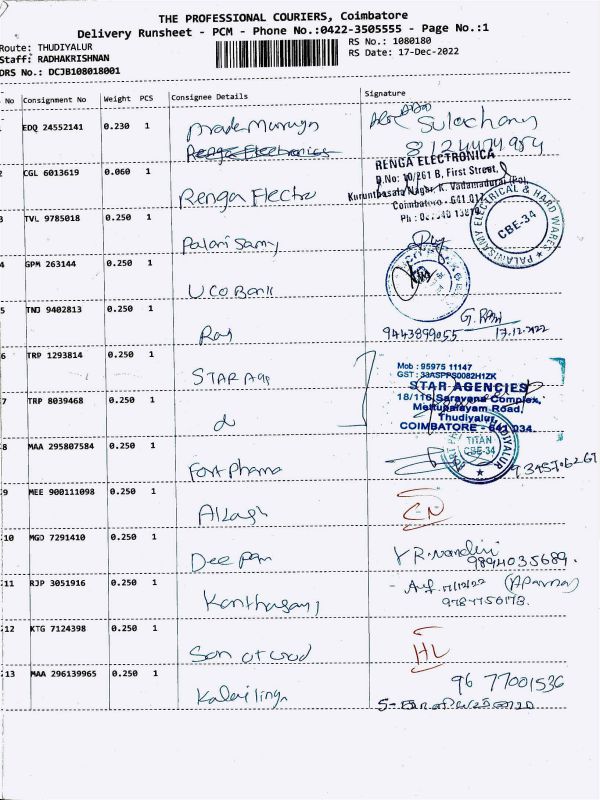 THE PROFESSIONAL COURIERS, Coimbatore
Delivery Runsheet - PCM - Phone No.:0422-3505555 - Page No.:1
Route: THUDIYALUR
RS No.: 1080180
Staff: RADHAKRISHNAN
RS Date: 17-Dec-2022
DRS No.: DCJB108018001
No Consignment No Weight PCS Consignee Details Signature
EDQ 24552141 0.230 1
Sulochana
Renga Electronics
2 CGL 6013619 0.060 1 Renga Electro
RENGA ELECTRONICA
D.No: 10/261 B, First Street,
Coimbatore - 641 017
3 TVL 9785018 0.250 1 Palanisamy
PALANISAMY ELECTRICAL & HARD WARES
CBE-34
4 GPM 263144 0.250 1 UCO Bank
5 TNJ 9402813 0.250 1 Raj
9443899055 17.12.2022
6 TRP 1293814 0.250 1 STAR Age
Mob : 95975 11147
GST : 33ASPPS0082H1ZK
STAR AGENCIES
18/116 Saravana Complex,
Mettupalayam Road,
Thudiyalur,
COIMBATORE - 641 034.
7 TRP 8039468 0.250 1
TITAN
CBE-34
8 MAA 295807584 0.250 1 Fort Pharma
9 MEE 900111098 0.250 1
10 MGD 7291410 0.250 1 Deepam
R. Nandini
9894035689.
11 RJP 3051916 0.250 1 Kanthasamy
17/12/22 (Aparna)
12 KTG 7124398 0.250 1
HL
13 MAA 296139965 0.250 1
96 77001536